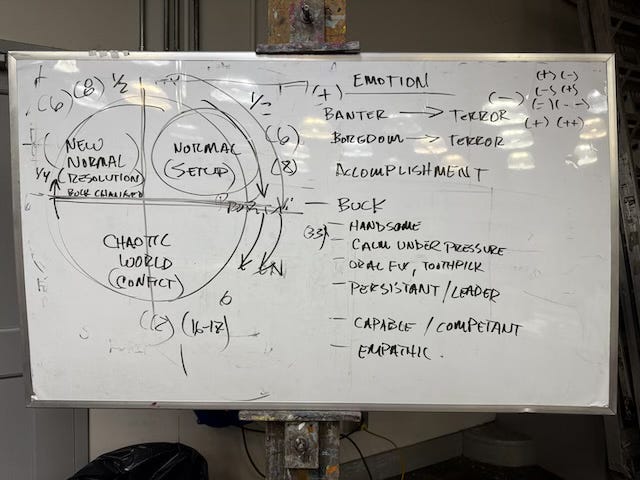 (6) (8) 1/2
NEW
NORMAL
(RESOLUTION)
1/4
NORMAL
(SETUP)
1/2
(6)
(8)
CHAOTIC
WORLD
6
(16-17)
EMOTION
(+) (-)
BANTER → TERROR
BOREDOM → TERROR
(+) (-)
(-) (+)
(-) (- -)
(+) (++)
ACCOMPLISHMENT
— BUCK
(33)
— HANDSOME
— CALM UNDER PRESSURE
— ORAL FIX, TOOTHPICK
— PERSISTANT / LEADER
— CAPABLE / COMPETANT
— EMPATHIC.